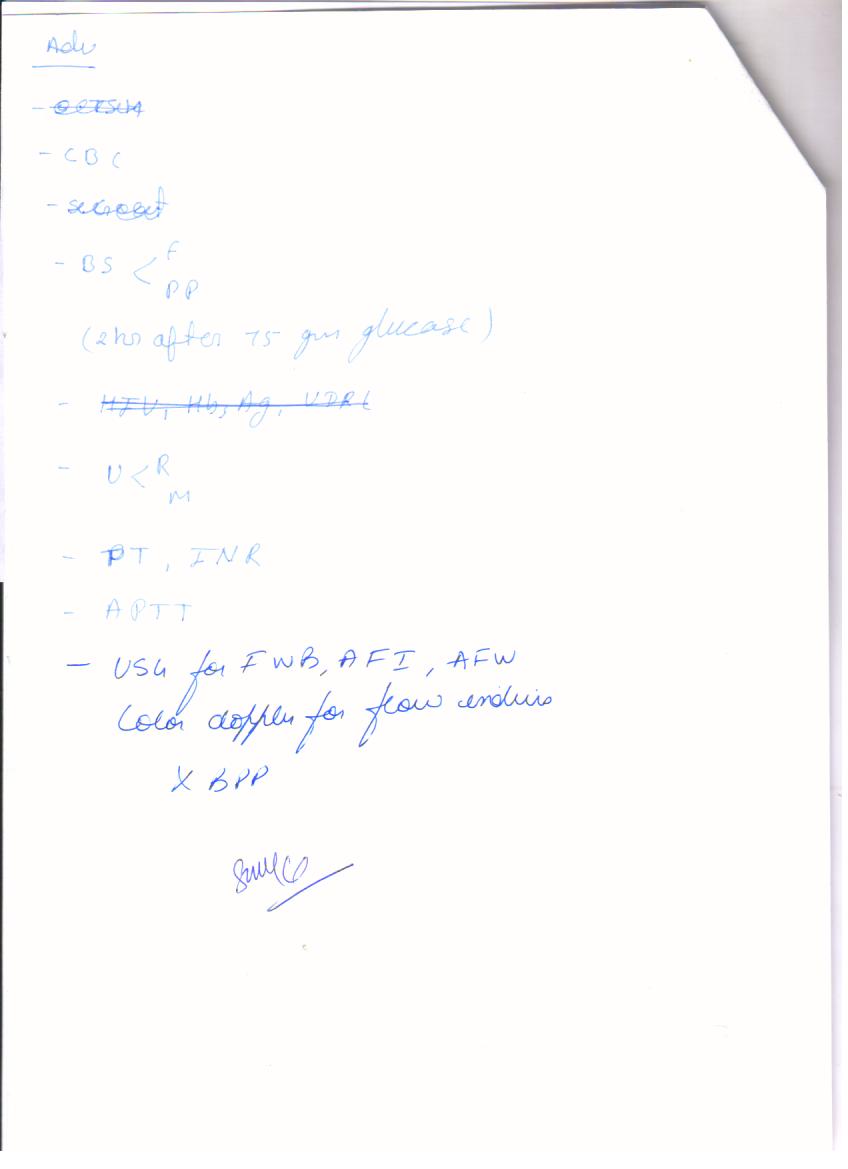 Adv
- CBC
- BS < F
PP
(2hr after 75 gm glucase)
- HIV, HbsAg, VDRL
- U < R
M
- PT, INR
- APTT
- USG for FWB, AFI, AFW
Color doppler for flow
X BPP